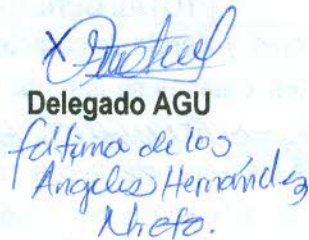 X
Delegado AGU
fátima de los
Angeles Hernández
Nieto.